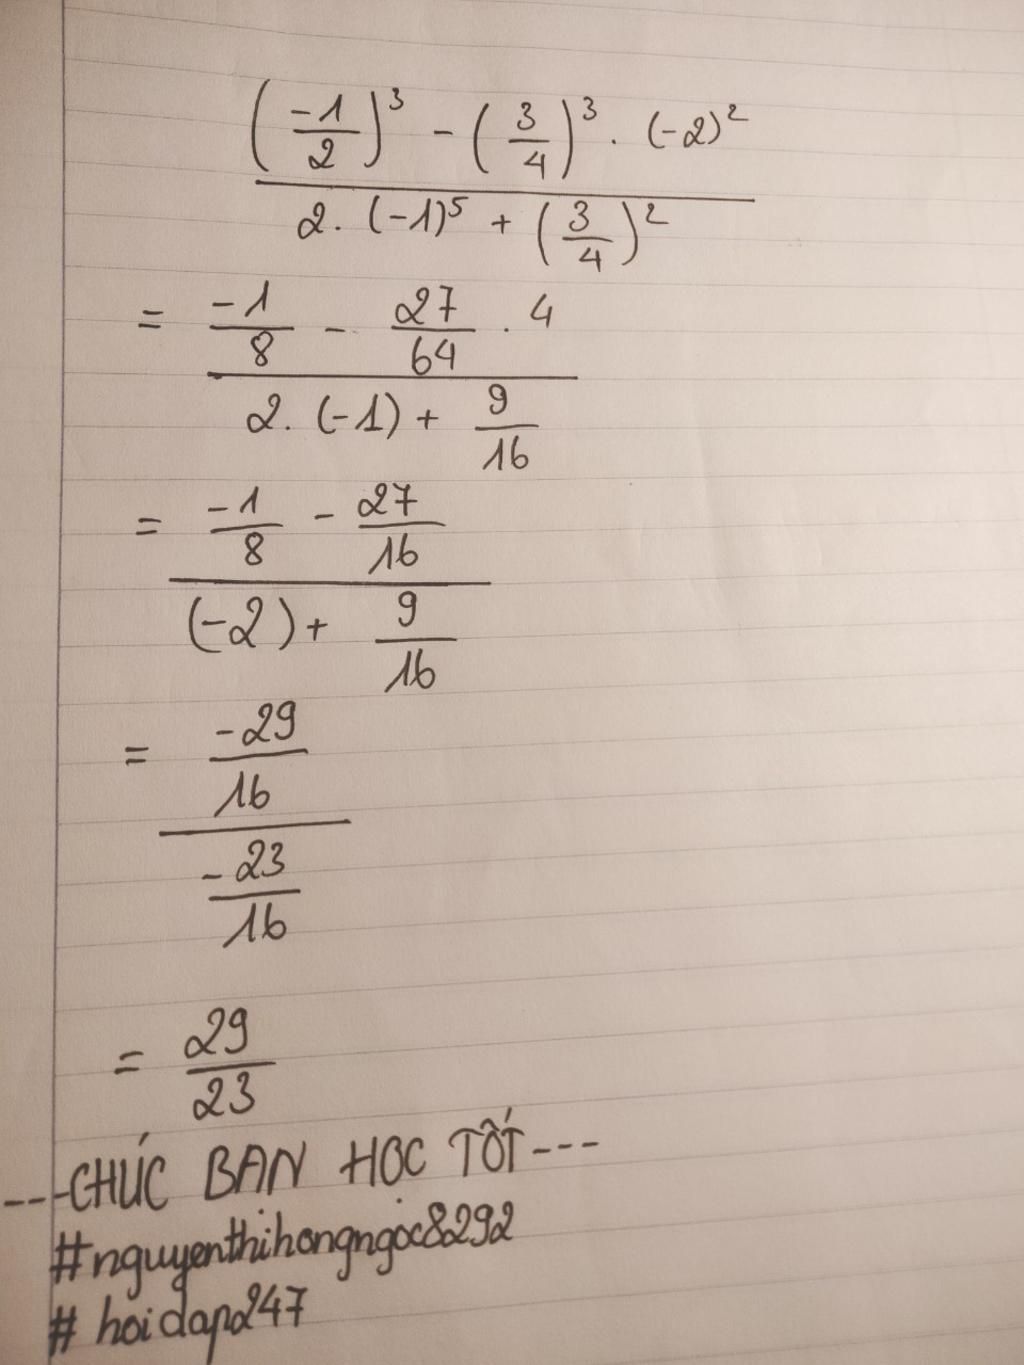 (-1/2)³ - (3/4)³ . (-2)²
2. (-1)⁵ + (3/4)²
= -1/8 - 27/64 . 4
2. (-1) + 9/16
= -1/8 - 27/16
(-2) + 9/16
= -29/16
-23/16
= 29/23
---CHÚC BAN HOC TỐT---
#nguyenthihongngoc8292
# hoidap247